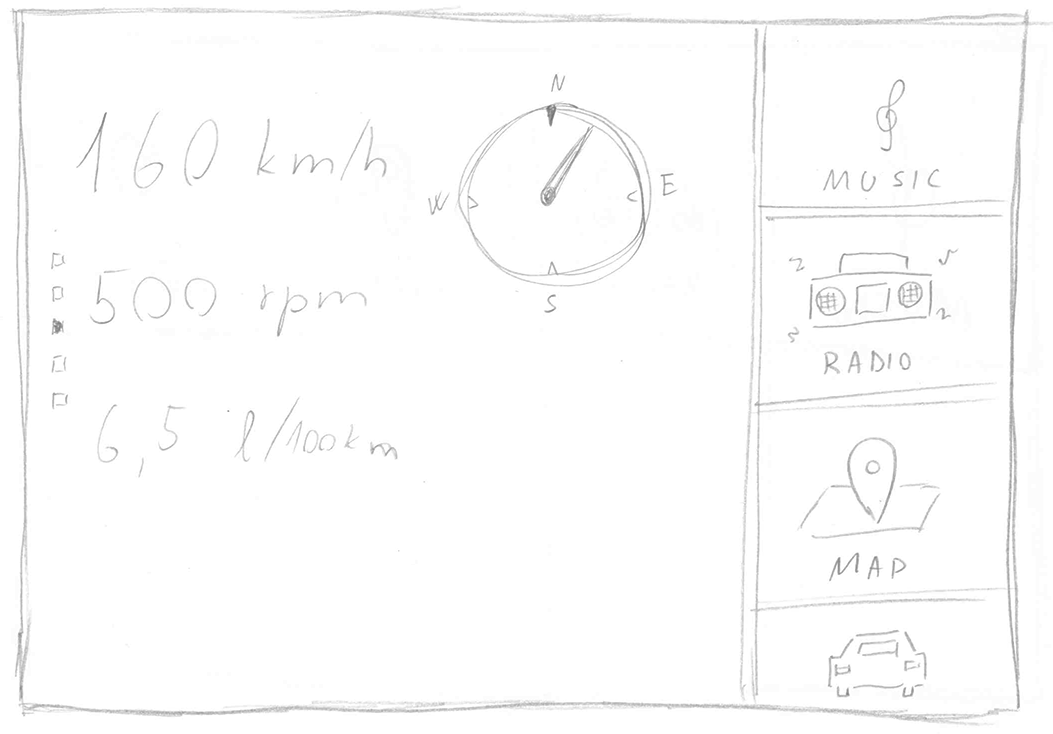 160 km/h
500 rpm
6,5 l/100km
N
W
E
S
MUSIC
RADIO
MAP